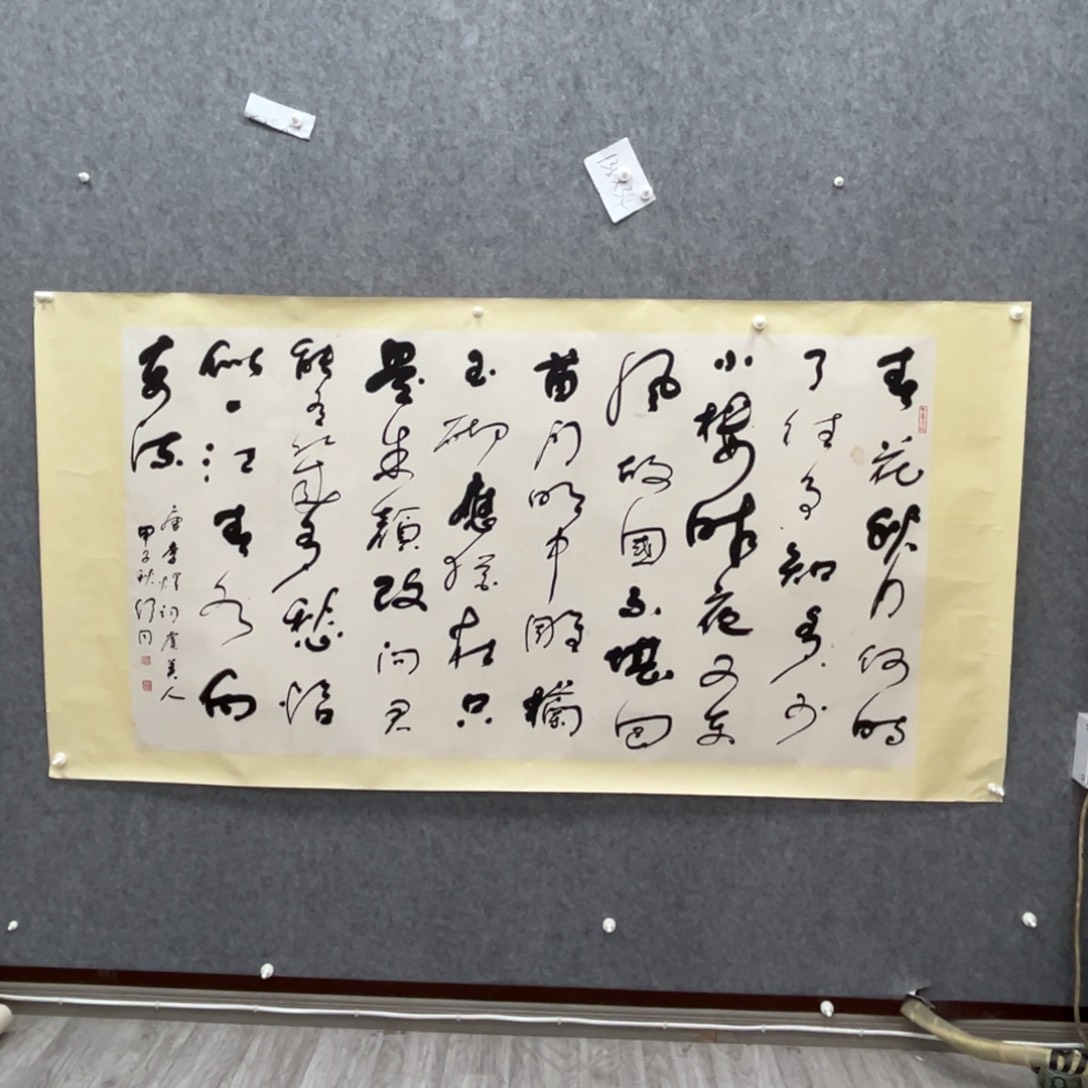 春花秋月何時
了往事知多少
小樓昨夜又東
風故國不堪回
首月明中雕欄
玉砌應猶在只
是朱顏改問君
能有幾多愁恰
似一江春水向
東流
唐李煜詞虞美人
甲子秋舒同